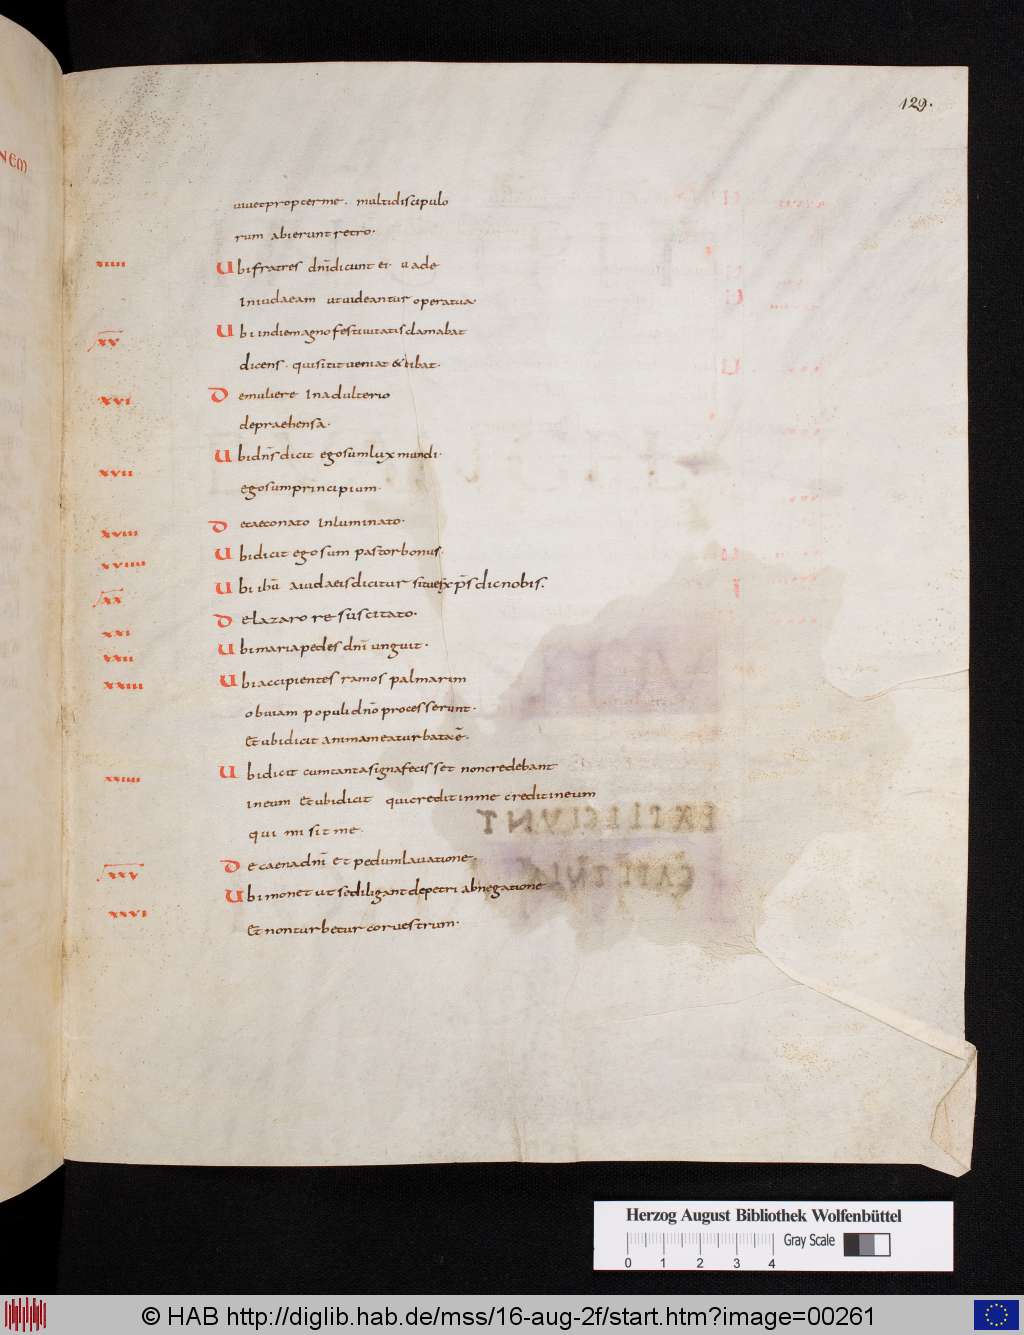 129.
uiuet propter me. multi discipulo
rum abierunt retro.
xiiii Ubi fratres dn̄i dicunt ei. uade
In iudaeam ut uideantur opera tua
xv Ubi in die magno festiuitatis clamabat
dicens. qui sitit ueniat & bibat.
xvi De muliere In adulterio
depraehensa.
xvii Ubi dn̄s dicit ego sum lux mundi.
ego sum principium.
xviii De caeco nato Inluminato.
xviiii Ubi dicit ego sum pastor bonus.
xx Ubi ihū a iudaeis dicitur si tu es xp̄s dic nobis.
xxi De lazaro resuscitato.
xxii Ubi maria pedes dn̄i unguit.
xxiii Ubi accipientes ramos palmarum
obuiam populi dn̄o processerunt.
Et ubi dicit anima mea turbata ē.
xxiiii Ubi dicit cum tanta signa fecisset non credebant
in eum Et ubi dicit qui credit in me credit in eum
qui misit me
xxv De caena dn̄i Et pedum lauatione
xxvi Ubi monet ut se diligant de petri abnegatione
Et non turbetur cor uestrum.
EXPLICIUNT
CAPITULA
Herzog August Bibliothek Wolfenbüttel
0 1 2 3 4
Gray Scale
© HAB http://diglib.hab.de/mss/16-aug-2f/start.htm?image=00261